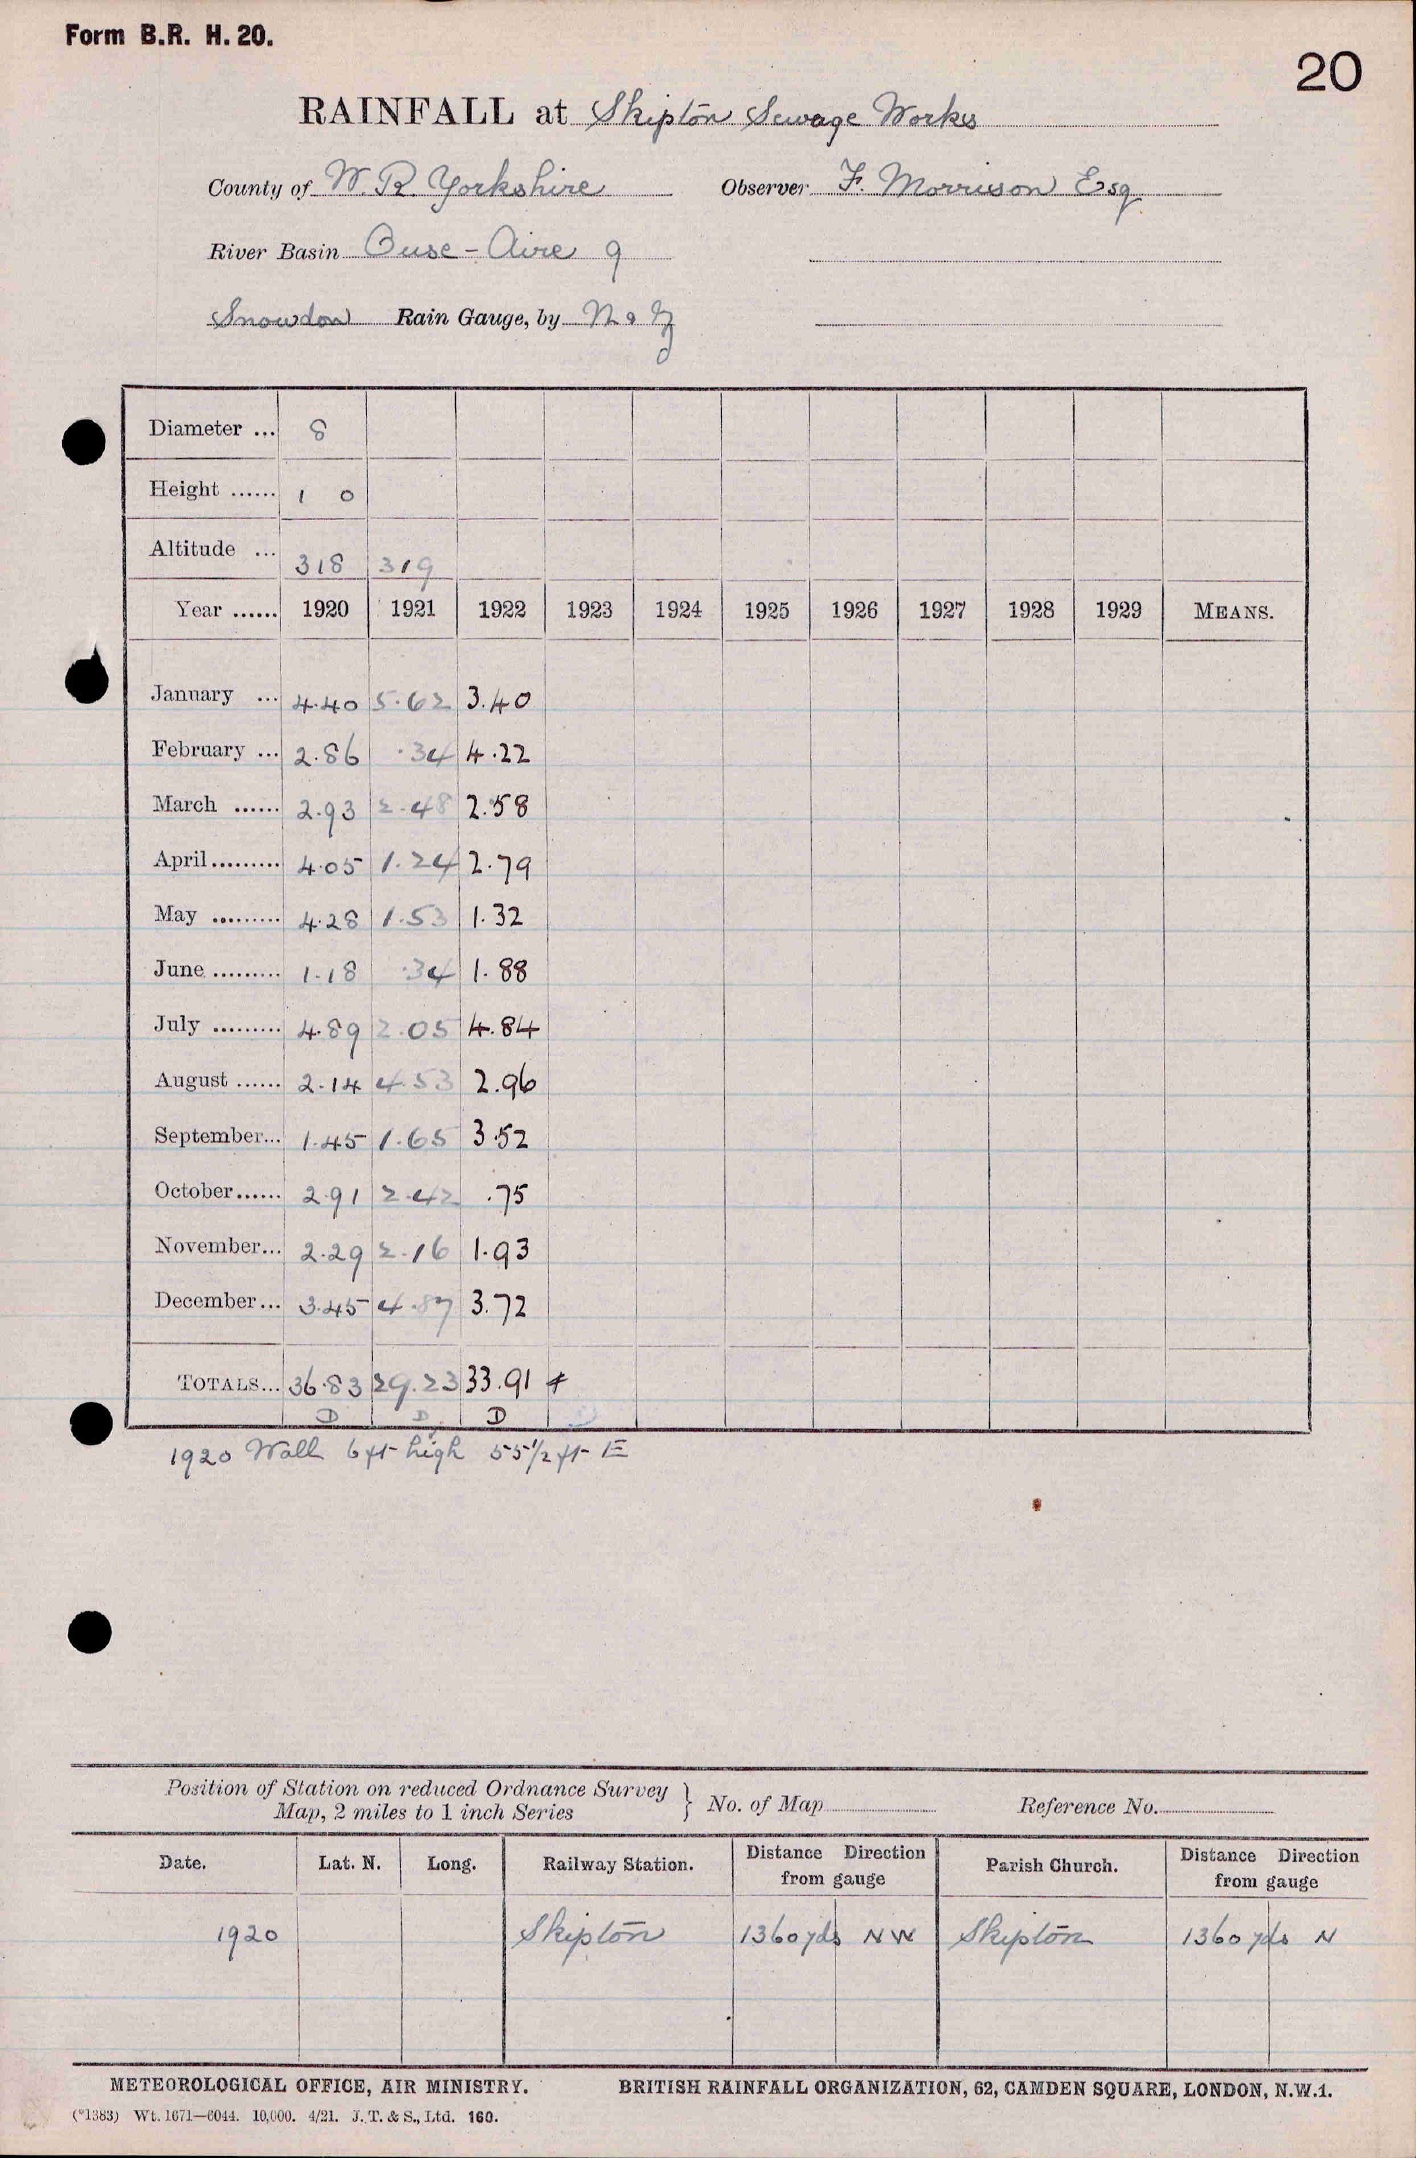 Form B.R. H. 20.
20
RAINFALL at Skipton Sewage Works
County of W. R. Yorkshire Observer F. Morrison Esq
River Basin Ouse - Aire 9
Snowdon Rain Gauge, by N & Z
Diameter ... 8
Height ...... 1 0
Altitude ... 318 319
Year ...... 1920 1921 1922 1923 1924 1925 1926 1927 1928 1929 MEANS.
January ... 4.40 5.62 3.40
February ... 2.86 .34 4.22
March ...... 2.93 2.48 2.58
April ......... 4.05 1.24 2.79
May ......... 4.28 1.53 1.32
June ......... 1.18 .34 1.88
July ......... 4.89 2.05 4.84
August ...... 2.14 4.53 2.96
September... 1.45 1.65 3.52
October...... 2.91 2.42 .75
November... 2.29 2.16 1.93
December... 3.45 4.87 3.72
TOTALS... 36.83 29.23 33.91
D D D
1920 Wall 6 ft high 55 1/2 ft E
Position of Station on reduced Ordnance Survey
Map, 2 miles to 1 inch Series } No. of Map Reference No.
Date. Lat. N. Long. Railway Station. Distance Direction from gauge Parish Church. Distance Direction from gauge
1920 Skipton 1360 yds NW Skipton 1360 yds N
METEOROLOGICAL OFFICE, AIR MINISTRY. BRITISH RAINFALL ORGANIZATION, 62, CAMDEN SQUARE, LONDON, N.W.1.
(*1383) Wt. 1671—6044. 10,000. 4/21. J. T. & S., Ltd. 160.